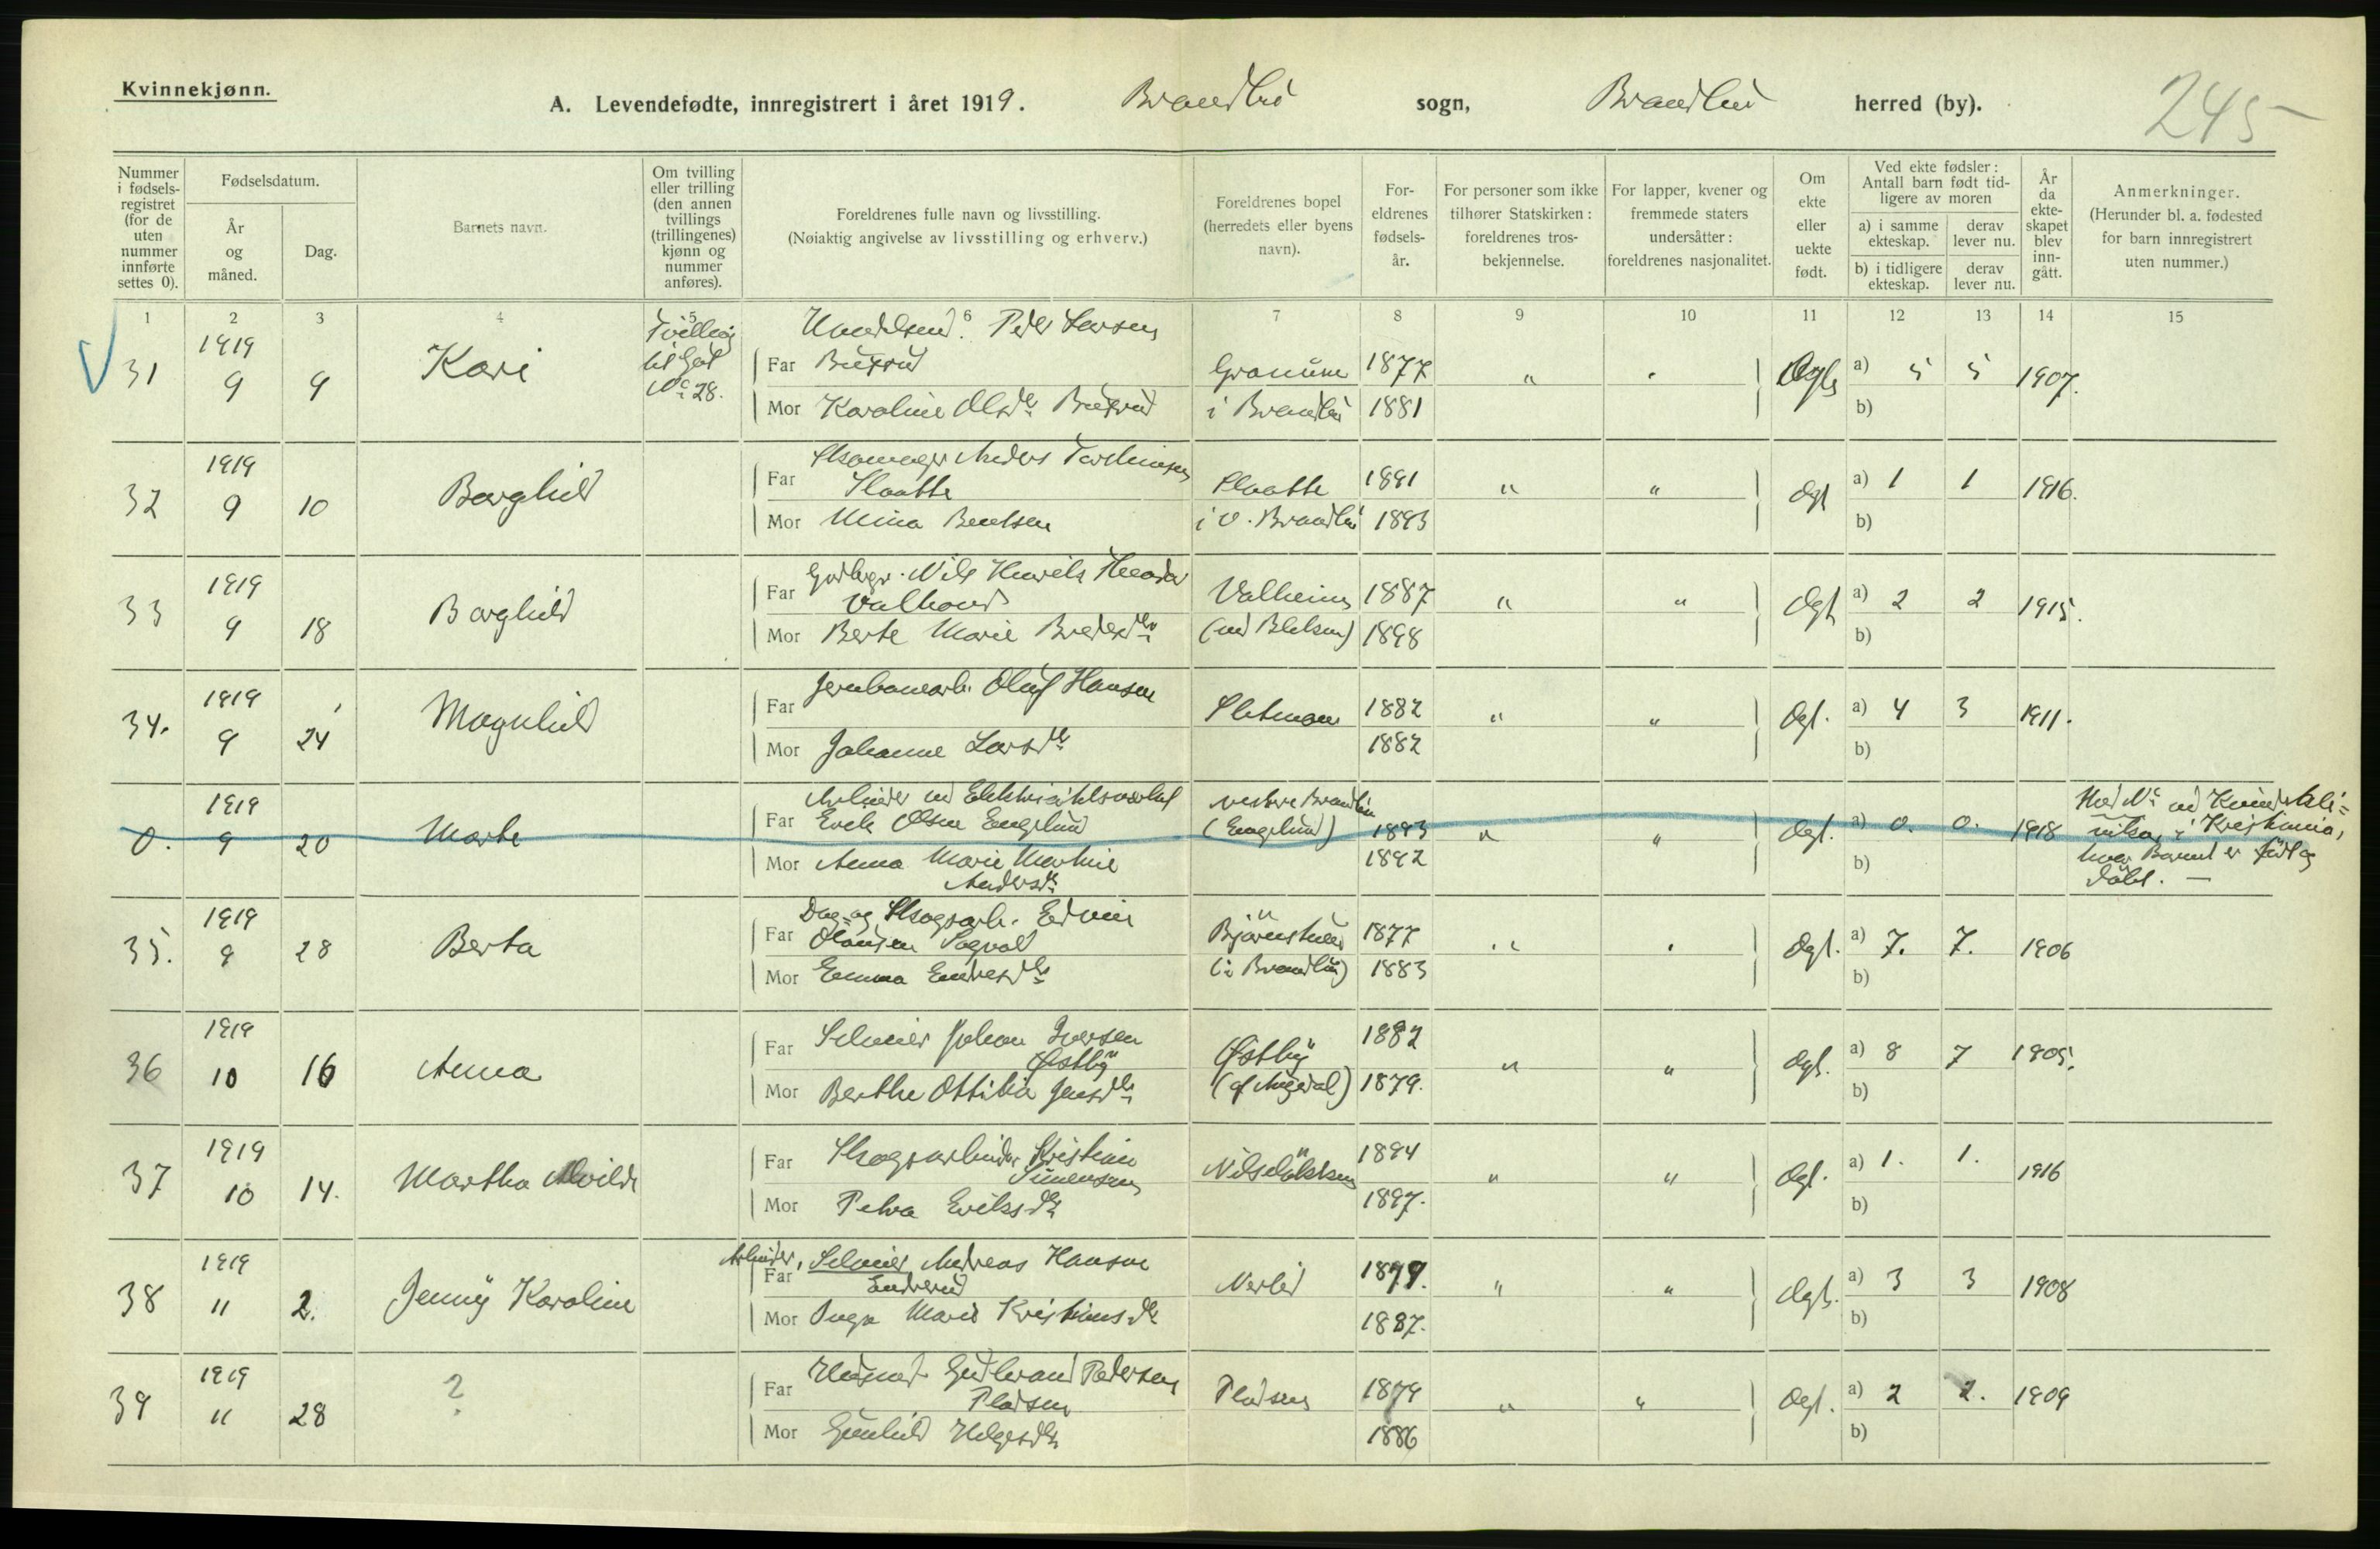 Kvinnekjønn.
A. Levendefødte, innregistrert i året 1919. Brandbu sogn, Brandbu herred (by).
245
Nummer i fødselsregistret (for de uten nummer innførte settes 0).
Fødselsdatum.
År og måned.
Dag.
Barnets navn.
Om tvilling eller trilling (den annen tvillings (trillingenes) kjønn og nummer anføres).
Foreldrenes fulle navn og livsstilling.
(Nøiaktig angivelse av livsstilling og erhverv.)
Foreldrenes bopel (herredets eller byens navn).
Foreldrenes fødselsår.
For personer som ikke tilhører Statskirken: foreldrenes trosbekjennelse.
For lapper, kvener og fremmede staters undersåtter: foreldrenes nasjonalitet.
Om ekte eller uekte født.
Ved ekte fødsler: Antall barn født tidligere av moren
a) i samme ekteskap.
derav lever nu.
b) i tidligere ekteskap.
derav lever nu.
År da ekteskapet blev inngått.
Anmerkninger.
(Herunder bl. a. fødested for barn innregistrert uten nummer.)
1 2 3 4 5 6 7 8 9 10 11 12 13 14 15
31 1919 9 9 Kari Tvilling til Gut No 28.
Peder Larsen
Far 1877 " Ægte a) 5 5 1907.
Mor Karoline Olsdtr i Brandbu 1881 b)
32 1919 9 10 Borghild
Anders
Far 1891 " " Ægt a) 1 1 1916.
Mor Mina Bentsen i V. Brandbu 1893 b)
33 1919 9 18 Borghild
Gaardbgr. Nils
Far Valheim 1887 " " Ægt a) 2 2 1915.
Mor Berte Marie 1898 b)
34. 1919 9 24 Magnhild
Jernbanearb. Oluf Hansen
Far 1882 " " Ægt. a) 4 3 1911.
Mor Johanne Larsdtr 1882 b)
0. 1919 9 20 Marte
Arbeider ved
Far Erik Olsen Englund vestre Brandbu (Englund) 1893 " " Ægt. a) 0. 0. 1918
Mor Anna Marie Martine Andersdtr 1892 b)
Med No ved Kvindekliniken i Kristiania, hvor Barnet er født og døbt. —
35. 1919 9 28 Berta
Dag- og Skogsarb. Edvin
Far Olausen (i Brandbu) 1877 Ægt. a) 7. 7. 1906
Mor Emma Endresdtr 1883 b)
36 1919 10 16 Anna
Far Selveier Johan Iversen Østby Østby 1882 " " Ægt. a) 8 7 1905.
Mor Berthe Ottilia Jensdtr 1879. b)
37 1919 10 14. Martha Alvilde
Far Skogsarbeider Kristian Simensen 1894 " " Ægt. a) 1. 1. 1916
Mor Petra Eriksdtr 1897. b)
38 1919 11 2. Jenny Karoline
Arbeider, Selveier Andreas Hansen
Far 1879. " " Ægt. a) 3 3 1908
Mor Inga Marie Kristiansdtr 1887. b)
39 1919 11 28 ?
Far Gudbrand Pedersen Pladsen Pladsen 1879 " " Ægt. a) 2 2. 1909
Mor Gunhild Helgesdtr 1886 b)